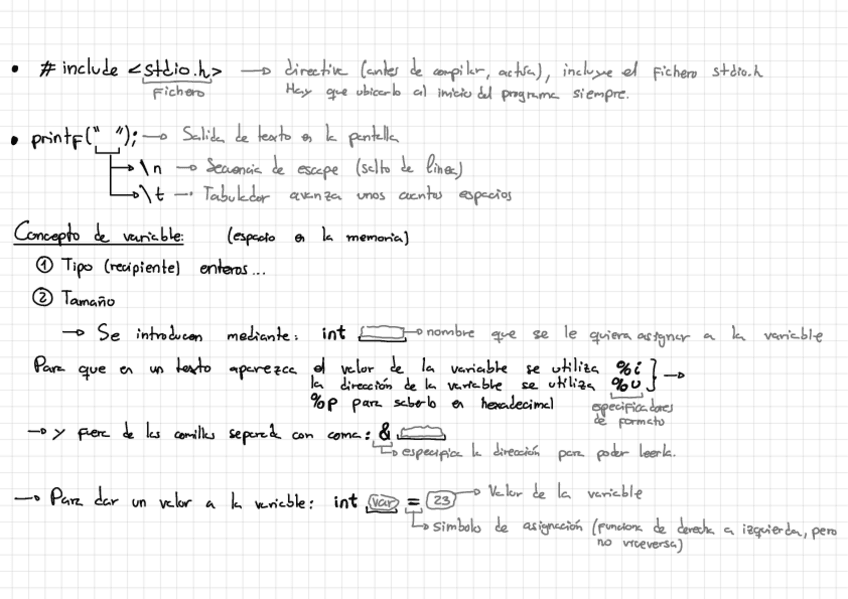 • #include <stdio.h> → directiva (antes de compilar, actúa), incluye el fichero stdio.h
Fichero Hay que ubicarlo al inicio del programa siempre.
• printf(" "); → Salida de texto en la pantalla
→ \n → Secuencia de escape (salto de línea)
→ \t → Tabulador avanza unos cuantos espacios
Concepto de variable: (espacio en la memoria)
① Tipo (recipiente) enteros...
② Tamaño
→ Se introducen mediante: int → nombre que se le quiera asignar a la variable
Para que en un texto aparezca el valor de la variable se utiliza %i } →
la dirección de la variable se utiliza %u
%p para saberlo en hexadecimal especificadores
de formato
→ y fuera de las comillas separada con coma: &
→ especifica la dirección para poder leerla.
→ Para dar un valor a la variable: int var = 23 → Valor de la variable
→ símbolo de asignación (funciona de derecha a izquierda, pero
no viceversa)